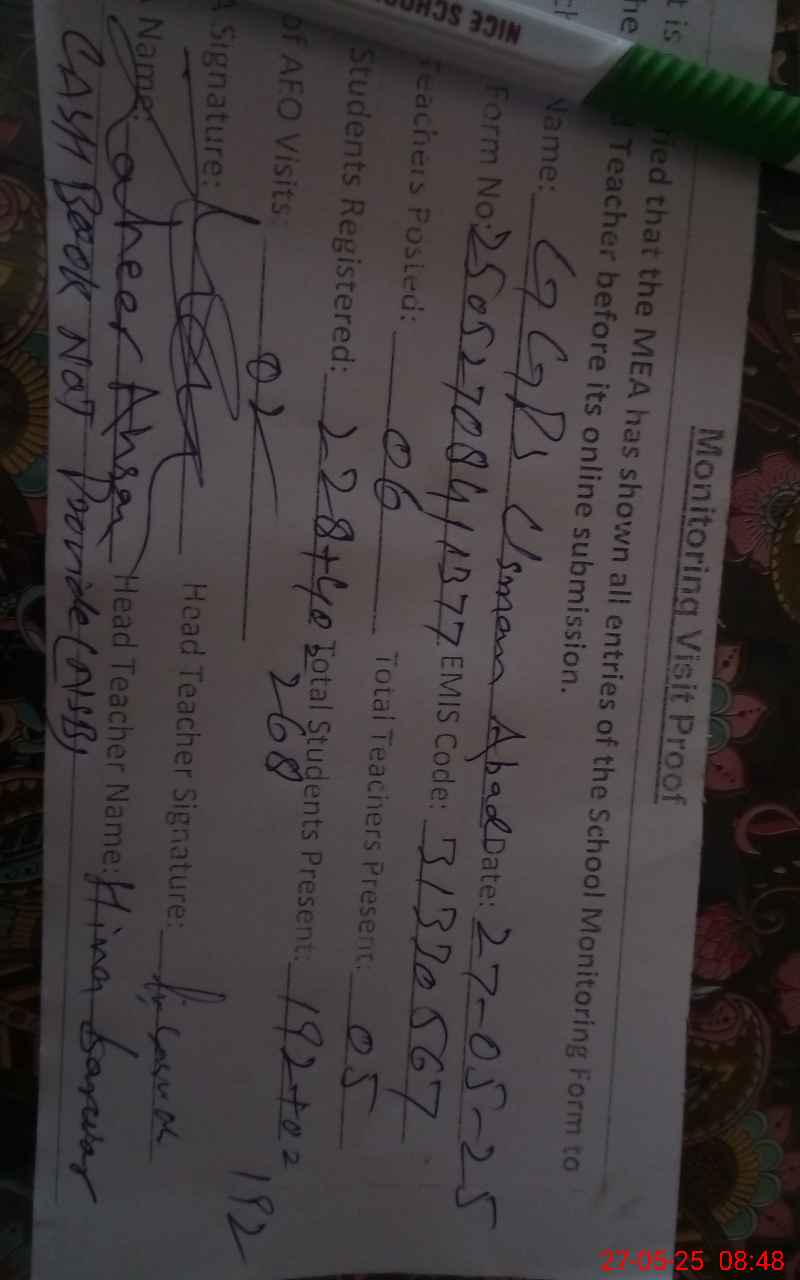 Monitoring Visit Proof
t is ied that the MEA has shown all entries of the School Monitoring Form to
he Teacher before its online submission.
Name: GGPS Usman Abad Date: 27-05-25
Form No: 25052708411377 EMIS Code: 31330567
Teachers Posted: 06 Total Teachers Present: 05
Students Registered: 228+40 Total Students Present: 192+02
268 192
of AEO Visits: 02
A Signature: Head Teacher Signature:
Name: Zaheer Ahsan Head Teacher Name: Hina Sarwar
CASH BOOK NOT Provide (NSB)
NICE SCHOO
27-05-25 08:48